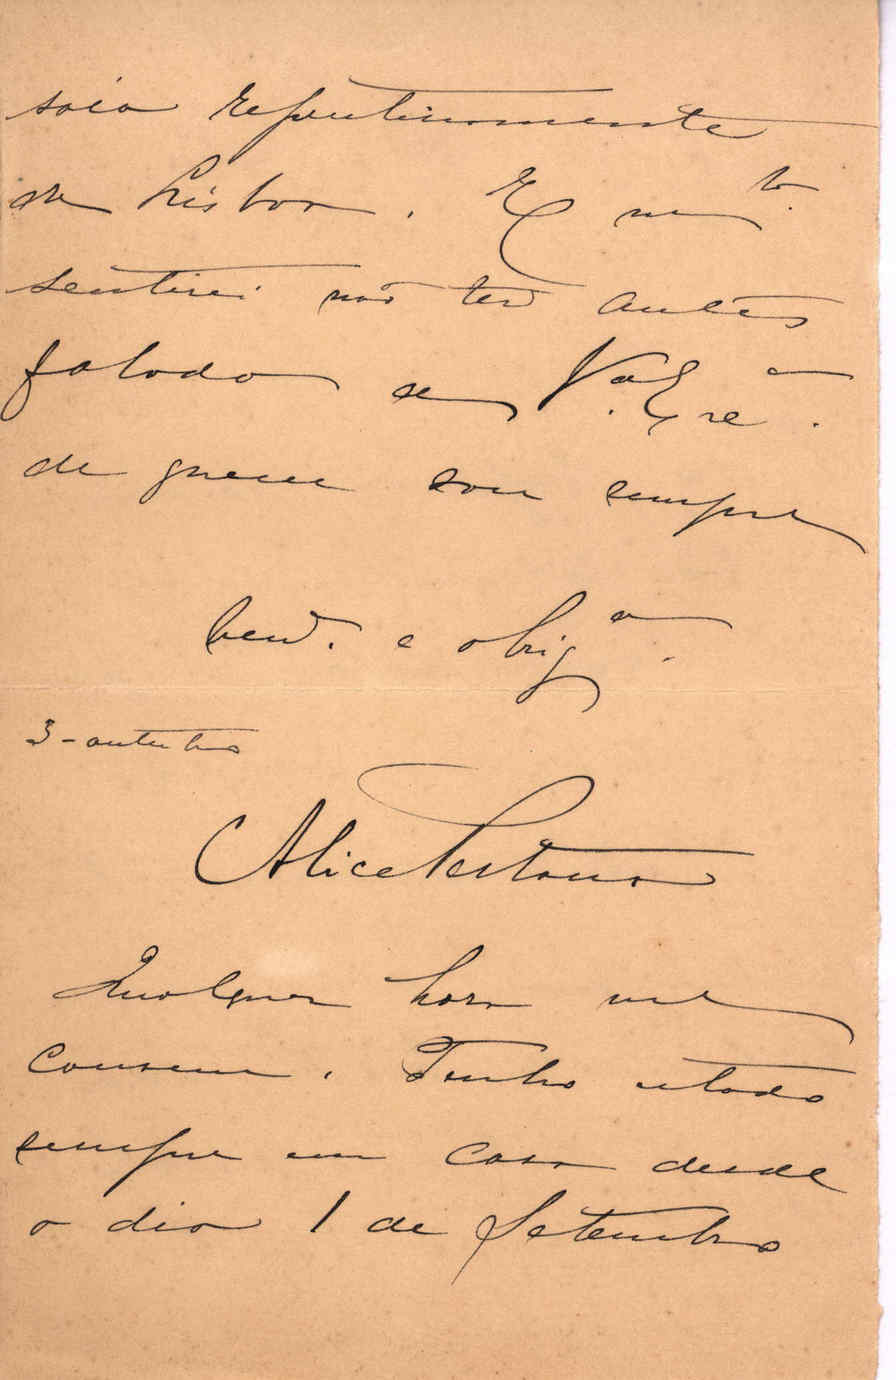 saia repentinamente
de Lisboa. E m.to
sentirei não ter antes
falado a V.a Ex.cia.
de quem sou sempre
e obrig.a
3-outubro
Alice Pestana
Qualquer hora me
convem. Tenho estado
sempre em casa desde
o dia 1 de Setembro